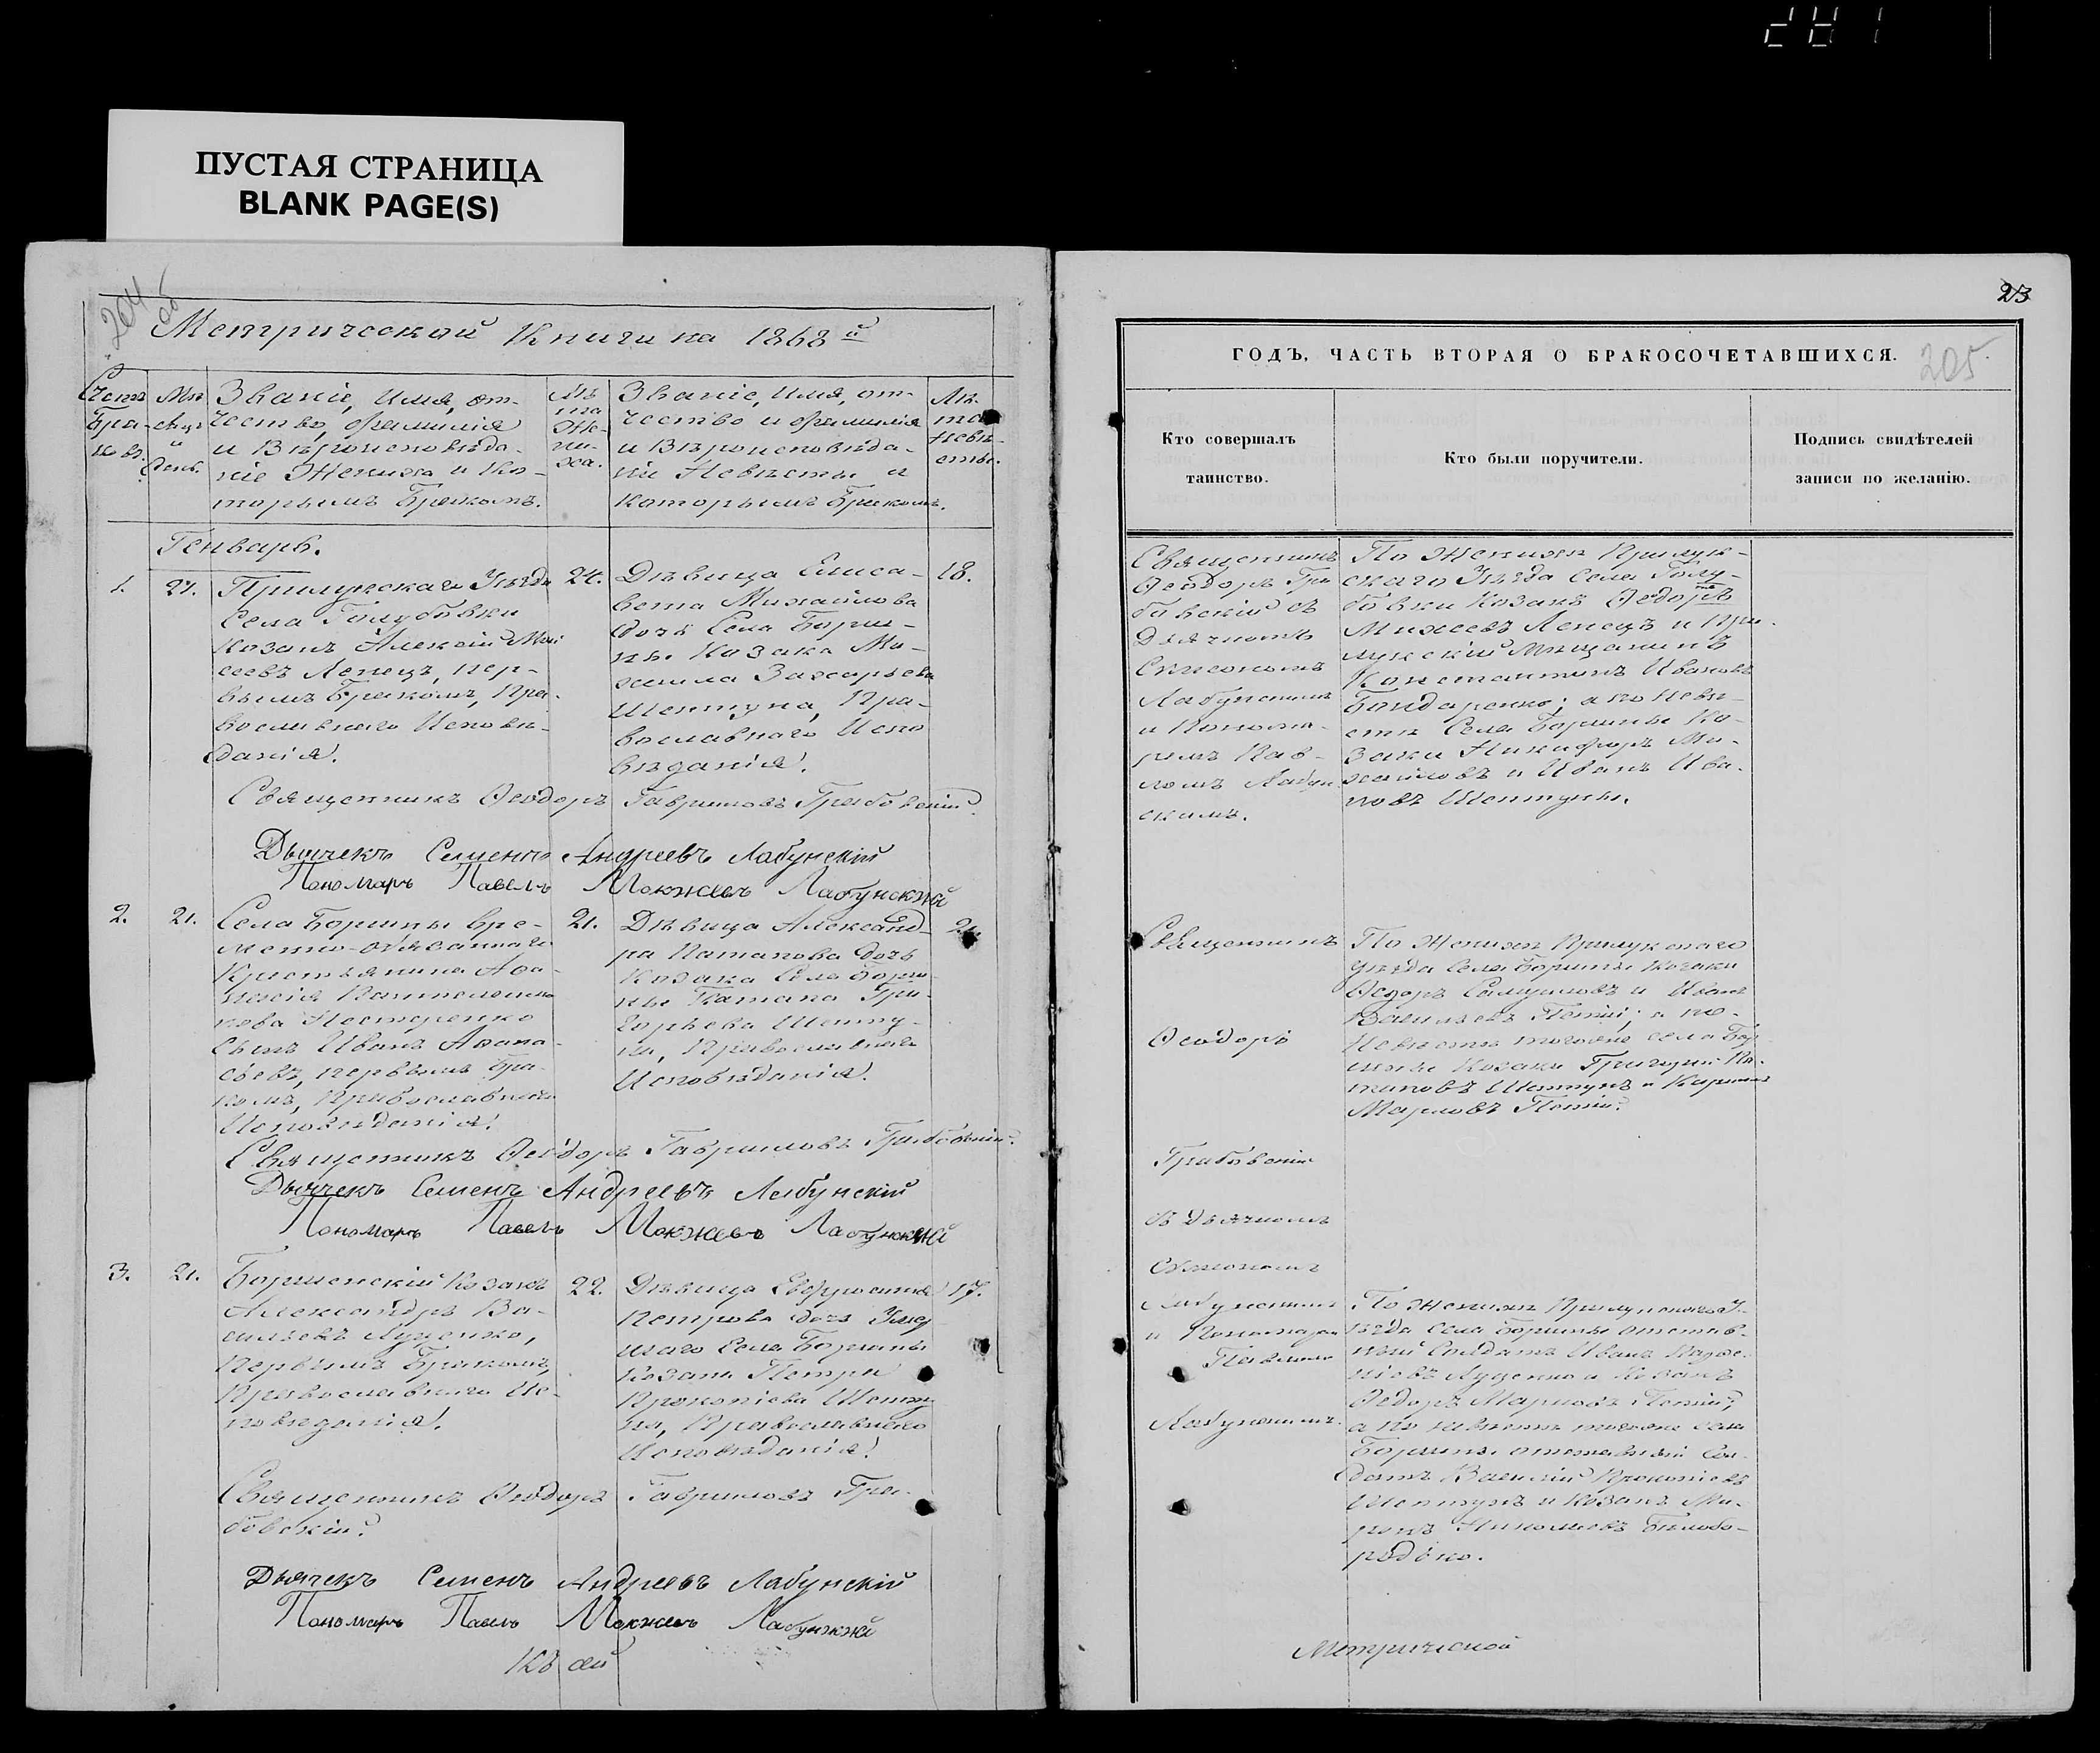 281
ПУСТАЯ СТРАНИЦА
BLANK PAGE(S)
204
об
Метрической Книги на 1868й
Счетъ
Бра-
ковъ.
Мѣ-
сяцъ
и
день.
Званіе, имя, от-
чество, фамилія
и вѣроисповѣда-
ніе Жениха и ко-
торымъ бракомъ.
Лѣ-
та
Же-
ни-
ха.
Званіе, имя, от-
чество и фамилія
и вѣроисповѣда-
ніе Невѣсты и
которымъ бракомъ.
Лѣ-
та
Невѣ-
сты.
Генварь.
1.
21.
Прилукскаго Уѣзда
Села Голубовки
козакъ Алексій Мои
сеевъ Лепецъ, пер-
вымъ бракомъ, Пра-
вославнаго Исповѣ-
данія.
24.
Дѣвица Елиса-
вета Михайлова
дочь Села Борщ-
ны козака Ми-
хаила Захарьева
Шептуна, Пра-
вославнаго Испо
вѣданія.
18.
Священникъ Ѳеодоръ Гавриловъ Грабовскій
Дьячекъ Семенъ Андреевъ Лабунскій
Пономарь Павелъ Мокіевъ Лабунскій
2.
21.
Села Борщны вре-
менно-обязаннаго
крестьянина Аѳа-
насія
Нестеренко
сынъ Иванъ Аѳана-
сьевъ, первымъ бра-
комъ, Православнаго
Исповѣданія.
21.
Дѣвица Александ-
ра Потапова дочь
козака Села Борщ-
ны Потапа Гри-
горьева Шепту-
на, Православнаго
Исповѣданія.
Священникъ Ѳеодоръ Гавриловъ Грабовскій
Дьячекъ Семенъ Андреевъ Лабунскій
Пономарь Павелъ Мокіевъ Лабунскій
3.
21.
Борщенскій козакъ
Александръ Ва-
сильевъ Луценко,
первымъ бракомъ,
Православнаго Ис-
повѣданія.
22.
Дѣвица Евфросинія
Петрова дочь
Села Борщны
козака Петра
Прокопіева Шепту
на, Православнаго
Исповѣданія.
17.
Священникъ Ѳеодоръ Гавриловъ Гра-
бовскій
Дьячекъ Семенъ Андреевъ Лабунскій
Пономарь Павелъ Мокіевъ Лабунскій
23
205
ГОДЪ, ЧАСТЬ ВТОРАЯ О БРАКОСОЧЕТАВШИХСЯ.
Кто совершалъ
таинство.
Кто были поручители.
Подпись свидѣтелей
записи по желанію.
Священникъ
Ѳеодоръ Гра
бовскій съ
Дьячкомъ
Симеономъ
Лабунскимъ
и Понома-
ремъ Пав-
ломъ Лабун
скимъ.
По Женихѣ Прилук-
скаго Уѣзда Села Голу-
бовки козакъ Ѳедоръ
Михеевъ Лепецъ и При-
лукскій мѣщанинъ
Константинъ Ивановъ
Бондаренко; а по невѣ-
стѣ Села Борщны ко-
заки Никифоръ Ми-
хайловъ и Иванъ Ива-
новъ Шептуны.
Священникъ
Ѳеодоръ
Грабовскій
съ Дьячкомъ
Симеономъ
Лабунскимъ
и Пономаремъ
Павломъ
Лабунскимъ.
По Женихѣ Прилукскаго
уѣзда Села Борщны козаки
Ѳедоръ Самуиловъ и Иванъ
а по
Невѣстѣ тогоже села Бор
щны козаки Григорій По-
таповъ Шептунъ и
Марковъ
По Женихѣ Прилукскаго У-
ѣзда Села Борщны отстав-
ной Солдатъ Иванъ
Луценко и козакъ
Ѳедоръ Марковъ
а по невѣстѣ тогоже села
Борщны отставной Сол-
датъ Василій Прокопіевъ
Шептунъ и козакъ Ми-
ронъ Николаевъ Бѣлобо-
родько.
Метрической